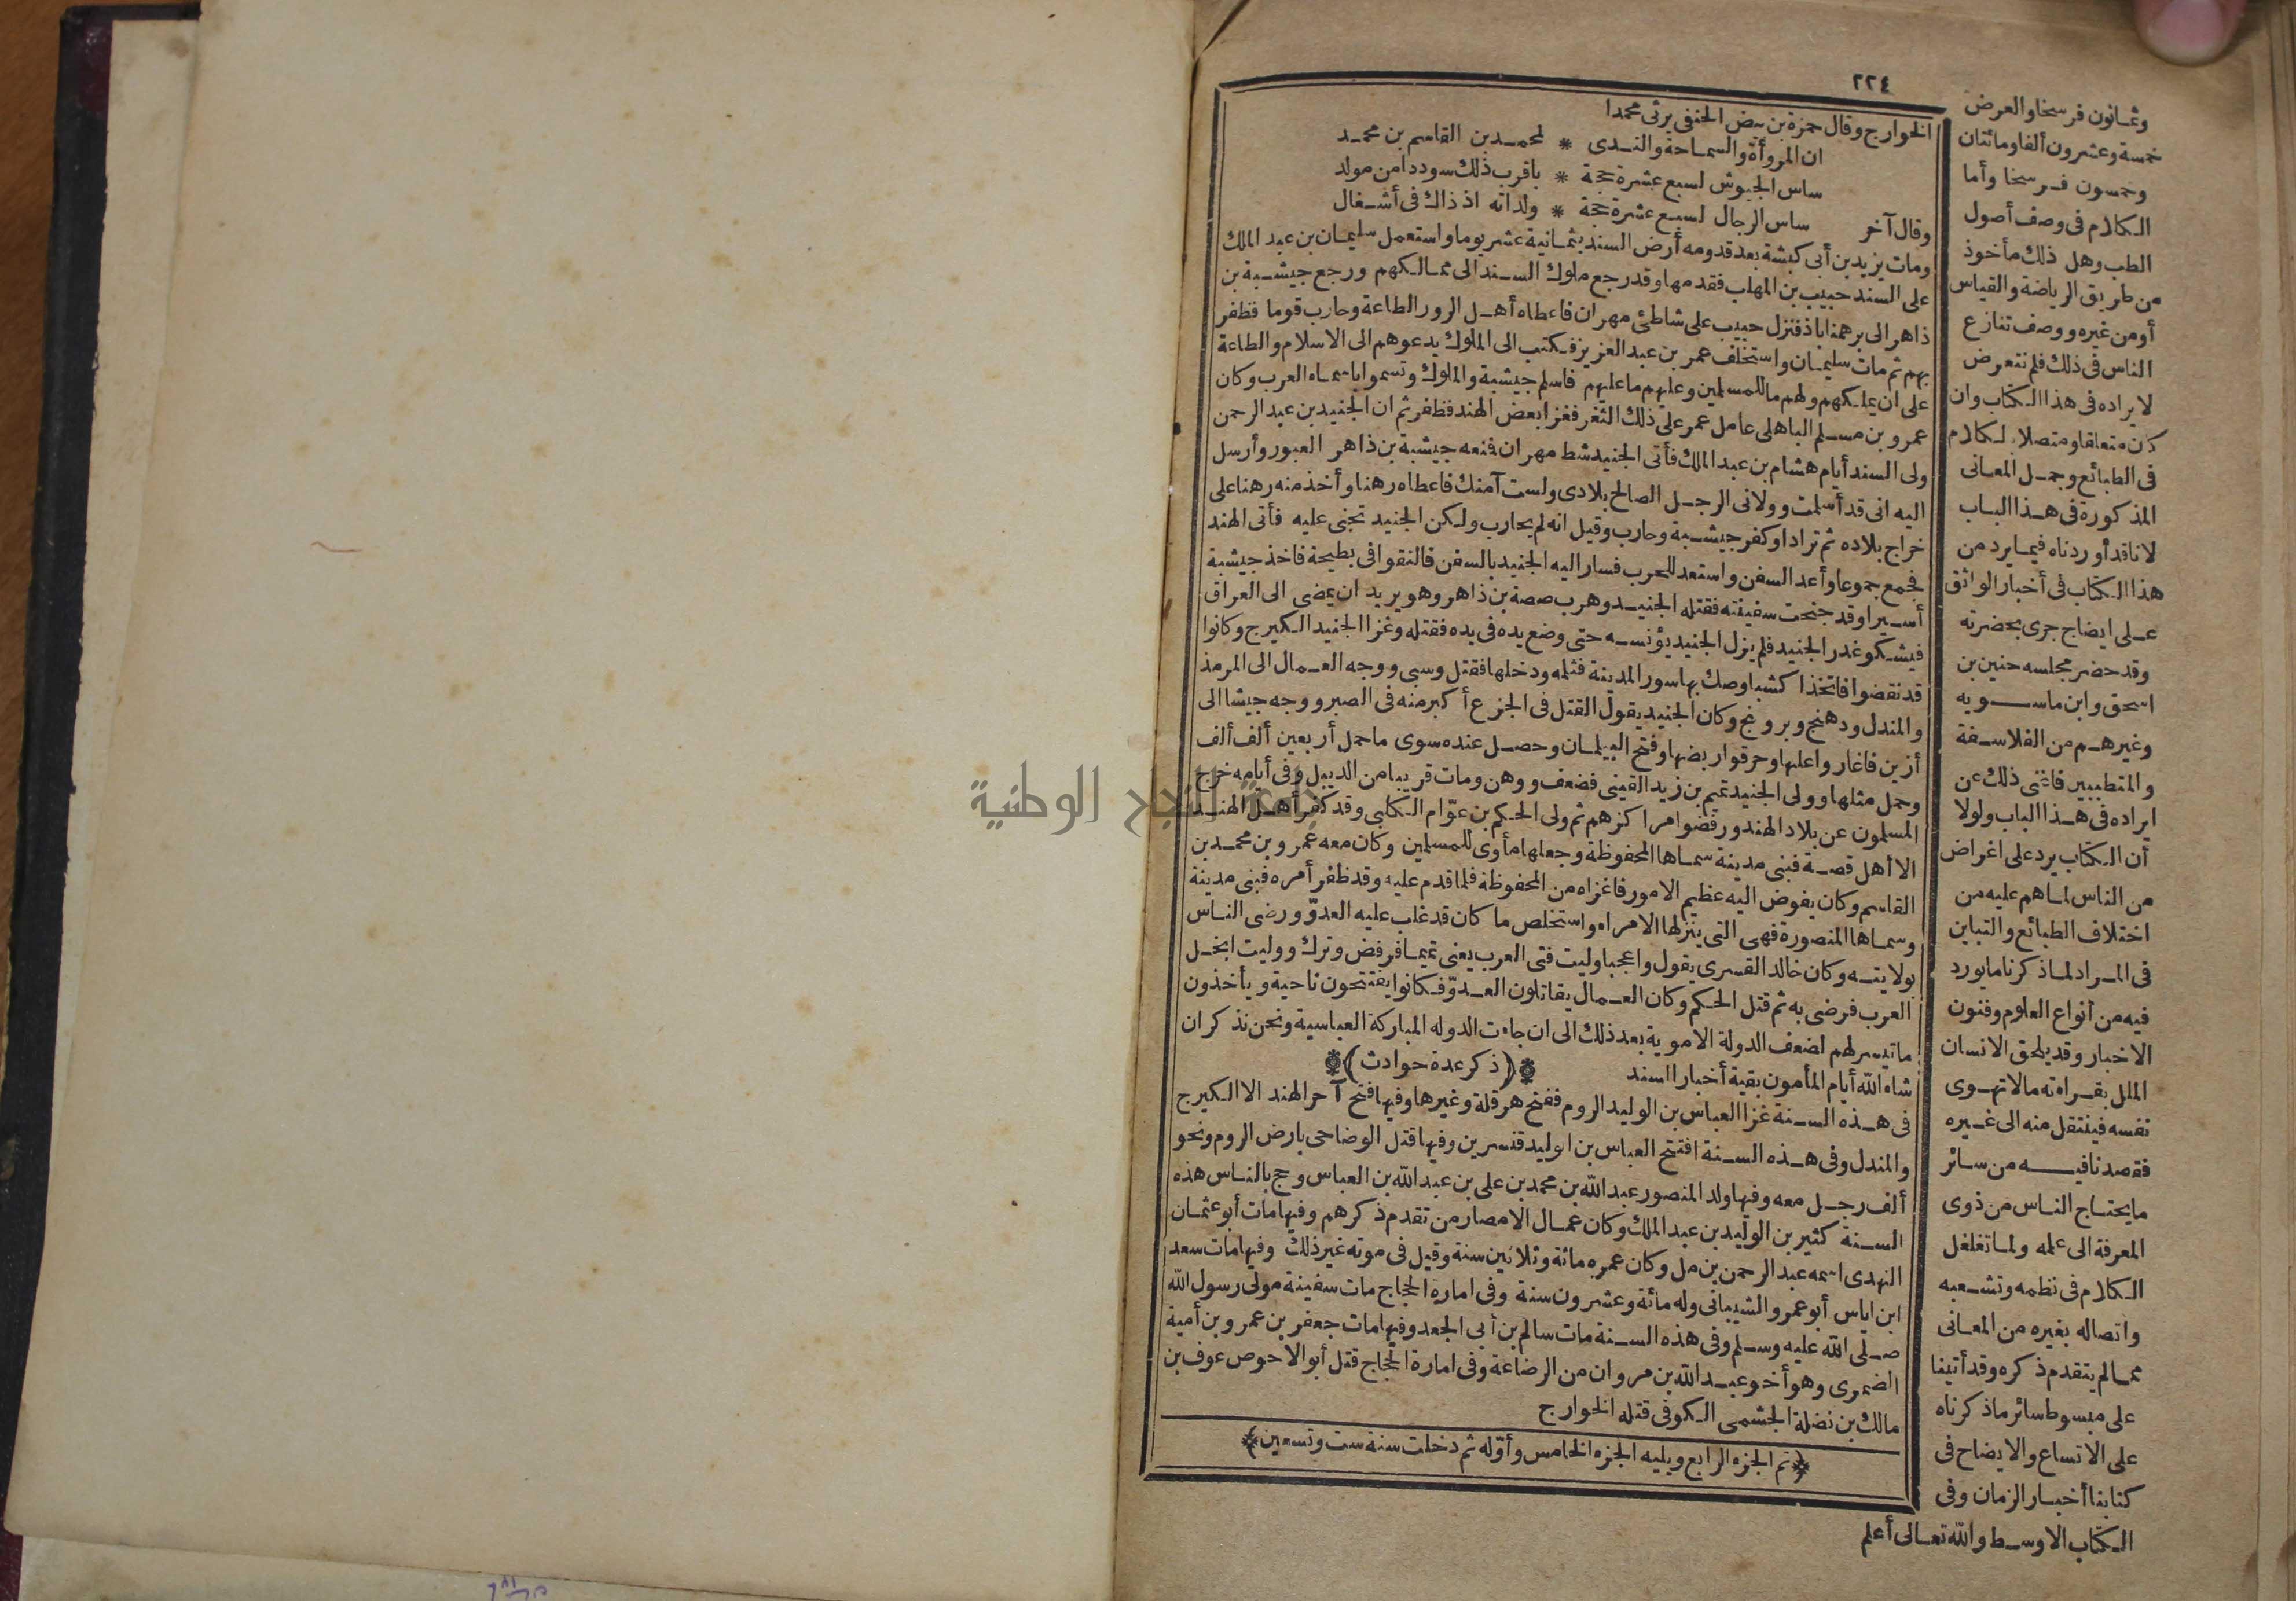 ٢٢٤
الخوارج وقال حمزة بن بيض الحنفي يرثى محمدا
ان المروأة والسماحة والندى * لمحمد بن القاسم بن محمد
ساس الجيوش لسبع عشرة حجة * ياقرب ذلك سوددا من مولد
وقال آخر ساس الرجال لسبع عشرة حجة * ولداته اذ ذاك فى أشغال
ومات يزيد بن أبى كبشة بعد قدومه أرض السند بثمانية عشر يوما واستعمل سليمان بن عبد الملك
على السند حبيب بن المهلب فقدمها وقد رجع ملوك السند الى ممالكهم ورجع جيشبة بن
ذاهر الى برهمناباذ فنزل حبيب على شاطئ مهران فاعطاه أهل الرور الطاعة وحارب قوما فظفر
بهم ثم مات سليمان واستخلف عمر بن عبد العزيز فكتب الى الملوك يدعوهم الى الاسلام والطاعة
على ان يملكهم ولهم ما للمسلمين وعليهم ما عليهم فاسلم جيشبة والملوك وتسموا باسماء العرب وكان
عمرو بن مسلم الباهلى عامل عمر على ذلك الثغر فغزا بعض الهند فظفر ثم ان الجنيد بن عبد الرحمن
ولى السند أيام هشام بن عبد الملك فأتى الجنيد شط مهران فمنعه جيشبة بن ذاهر العبور وأرسل
اليه انى قد أسلمت وولانى الرجل الصالح بلادى ولست آمنك فاعطاه رهنا وأخذ منه رهنا على
خراج بلاده ثم ترادا وكفر جيشبة وحارب وقيل انه لم يحارب ولكن الجنيد تجنى عليه فأتى الهند
فجمع جموعا وأعد السفن واستعد للحرب فسار اليه الجنيد بالسفن فالتقوا فى بطيحة فاخذ جيشبة
أسيرا وقد جنحت سفينته فقتله الجنيد وهرب صصة بن ذاهر وهو يريد ان يمضى الى العراق
فيشكو غدر الجنيد فلم يزل الجنيد يؤنسه حتى وضع يده فى يده فقتله وغزا الجنيد الكيرج وكانوا
قد نقضوا فاتخذ اكشبا وصك بها سور المدينة فثلمه ودخلها فقتل وسبى ووجه العمال الى المرمذ
والمندل ودهنج وبرونج وكان الجنيد يقول القتل فى الجزع أكبر منه فى الصبر ووجه جيشا الى
أزين فاغاروا عليها وحرقوا ربضها وفتح البيلمان وحصل عنده سوى ما حمل أربعين ألف ألف
وحمل مثلها وولى الجنيد تميم بن زيد القينى فضعف ووهن ومات قريبا من الديبل وفى أيامه خرج
المسلمون عن بلاد الهند ورفضوا مراكزهم ثم ولى الحكم بن عوّام الكلبى وقد كفر أهل الهند
الا أهل قصة فبنى مدينة سماها المحفوظة وجعلها مأوى للمسلمين وكان معه عمرو بن محمد بن
القاسم وكان يفوض اليه عظيم الامور فاغزاه من المحفوظة فلما قدم عليه وقد ظفر أمره فبنى مدينة
وسماها المنصورة فهى التى ينزلها الامراء واستخلص ما كان قد غلب عليه العدوّ ورضى الناس
بولايته وكان خالد القسرى يقول واعجبا وليت فتى العرب يعنى تميما فرفض وترك ووليت أبخل
العرب فرضى به ثم قتل الحكم وكان العمال يقاتلون العدوّ فكانوا يفتتحون ناحية ويأخذون
ما تيسر لهم لضعف الدولة الاموية بعد ذلك الى ان جاءت الدولة المباركة العباسية ونحن نذكر ان
شاء الله أيام المأمون بقية أخبار السند
(ذكر عدة حوادث)
فى هذه السنة غزا العباس بن الوليد الروم ففتح هرقلة وغيرها وفيها فتح آخر الهند الا الكيرج
والمندل وفى هذه السنة افتتح العباس بن الوليد قنسرين وفيها قتل الوضاحى بارض الروم ونحو
ألف رجل معه وفيها ولد المنصور عبد الله بن محمد بن على بن عبد الله بن العباس وحج بالناس هذه
السنة كثير بن الوليد بن عبد الملك وكان عمال الامصار من تقدم ذكرهم وفيها مات أبو عثمان
النهدى اسمه عبد الرحمن بن مل وكان عمره مائة وثلاثين سنة وقيل فى موته غير ذلك وفيها مات سعد
ابن اياس أبو عمرو الشيبانى وله مائة وعشرون سنة وفى امارة الحجاج مات سفينة مولى رسول الله
صلى الله عليه وسلم وفى هذه السنة مات سالم بن أبى الجعد وفيها مات جعفر بن عمرو بن أمية
الضمرى وهو أخو عبد الله بن مروان من الرضاعة وفى امارة الحجاج قتل أبو الاحوص عوف بن
مالك بن نضلة الجشمى الكوفى قتله الخوارج
(تم الجزء الرابع ويليه الجزء الخامس وأوّله ثم دخلت سنة ست وتسعين)
وثمانون فرسخا والعرض
خمسة وعشرون ألفا ومائتان
وخمسون فرسخا وأما
الكلام فى وصف أصول
الطب وهل ذلك مأخوذ
من طريق الرياضة والقياس
أو من غيره ووصف تنازع
الناس فى ذلك فلم نتعرض
لايراده فى هذا الكتاب وان
كان متعلقا ومتصلا بالكلام
فى الطبائع وجمل المعانى
المذكورة فى هذا الباب
لانا قد أوردناه فيما يرد من
هذا الكتاب فى أخبار الواثق
على ايضاح جرى بحضرته
وقد حضر مجلسه حنين بن
اسحق وابن ماسويه
وغيرهم من الفلاسفة
والمتطببير فاغنى ذلك عن
ايراده فى هذا الباب ولولا
أن الكتاب يرد على اغراض
من الناس لما هم عليه من
اختلاف الطبائع والتباين
فى المراد لما ذكرنا ما يورد
فيه من أنواع العلوم وفنون
الاخبار وقد يلحق الانسان
الملل بقراءته ما لا تهوى
نفسه فينتقل منه الى غيره
فقصدنا فيه من سائر
ما يحتاج الناس من ذوى
المعرفة الى علمه ولما تغلغل
الكلام فى نظمه وتشعبه
واتصاله بغيره من المعانى
مما لم يتقدم ذكره وقد أتينا
على مبسوط سائر ما ذكرناه
على الاتساع والايضاح فى
كتابنا أخبار الزمان وفى
الكتاب الاوسط والله تعالى أعلم
جامعة النجاح الوطنية